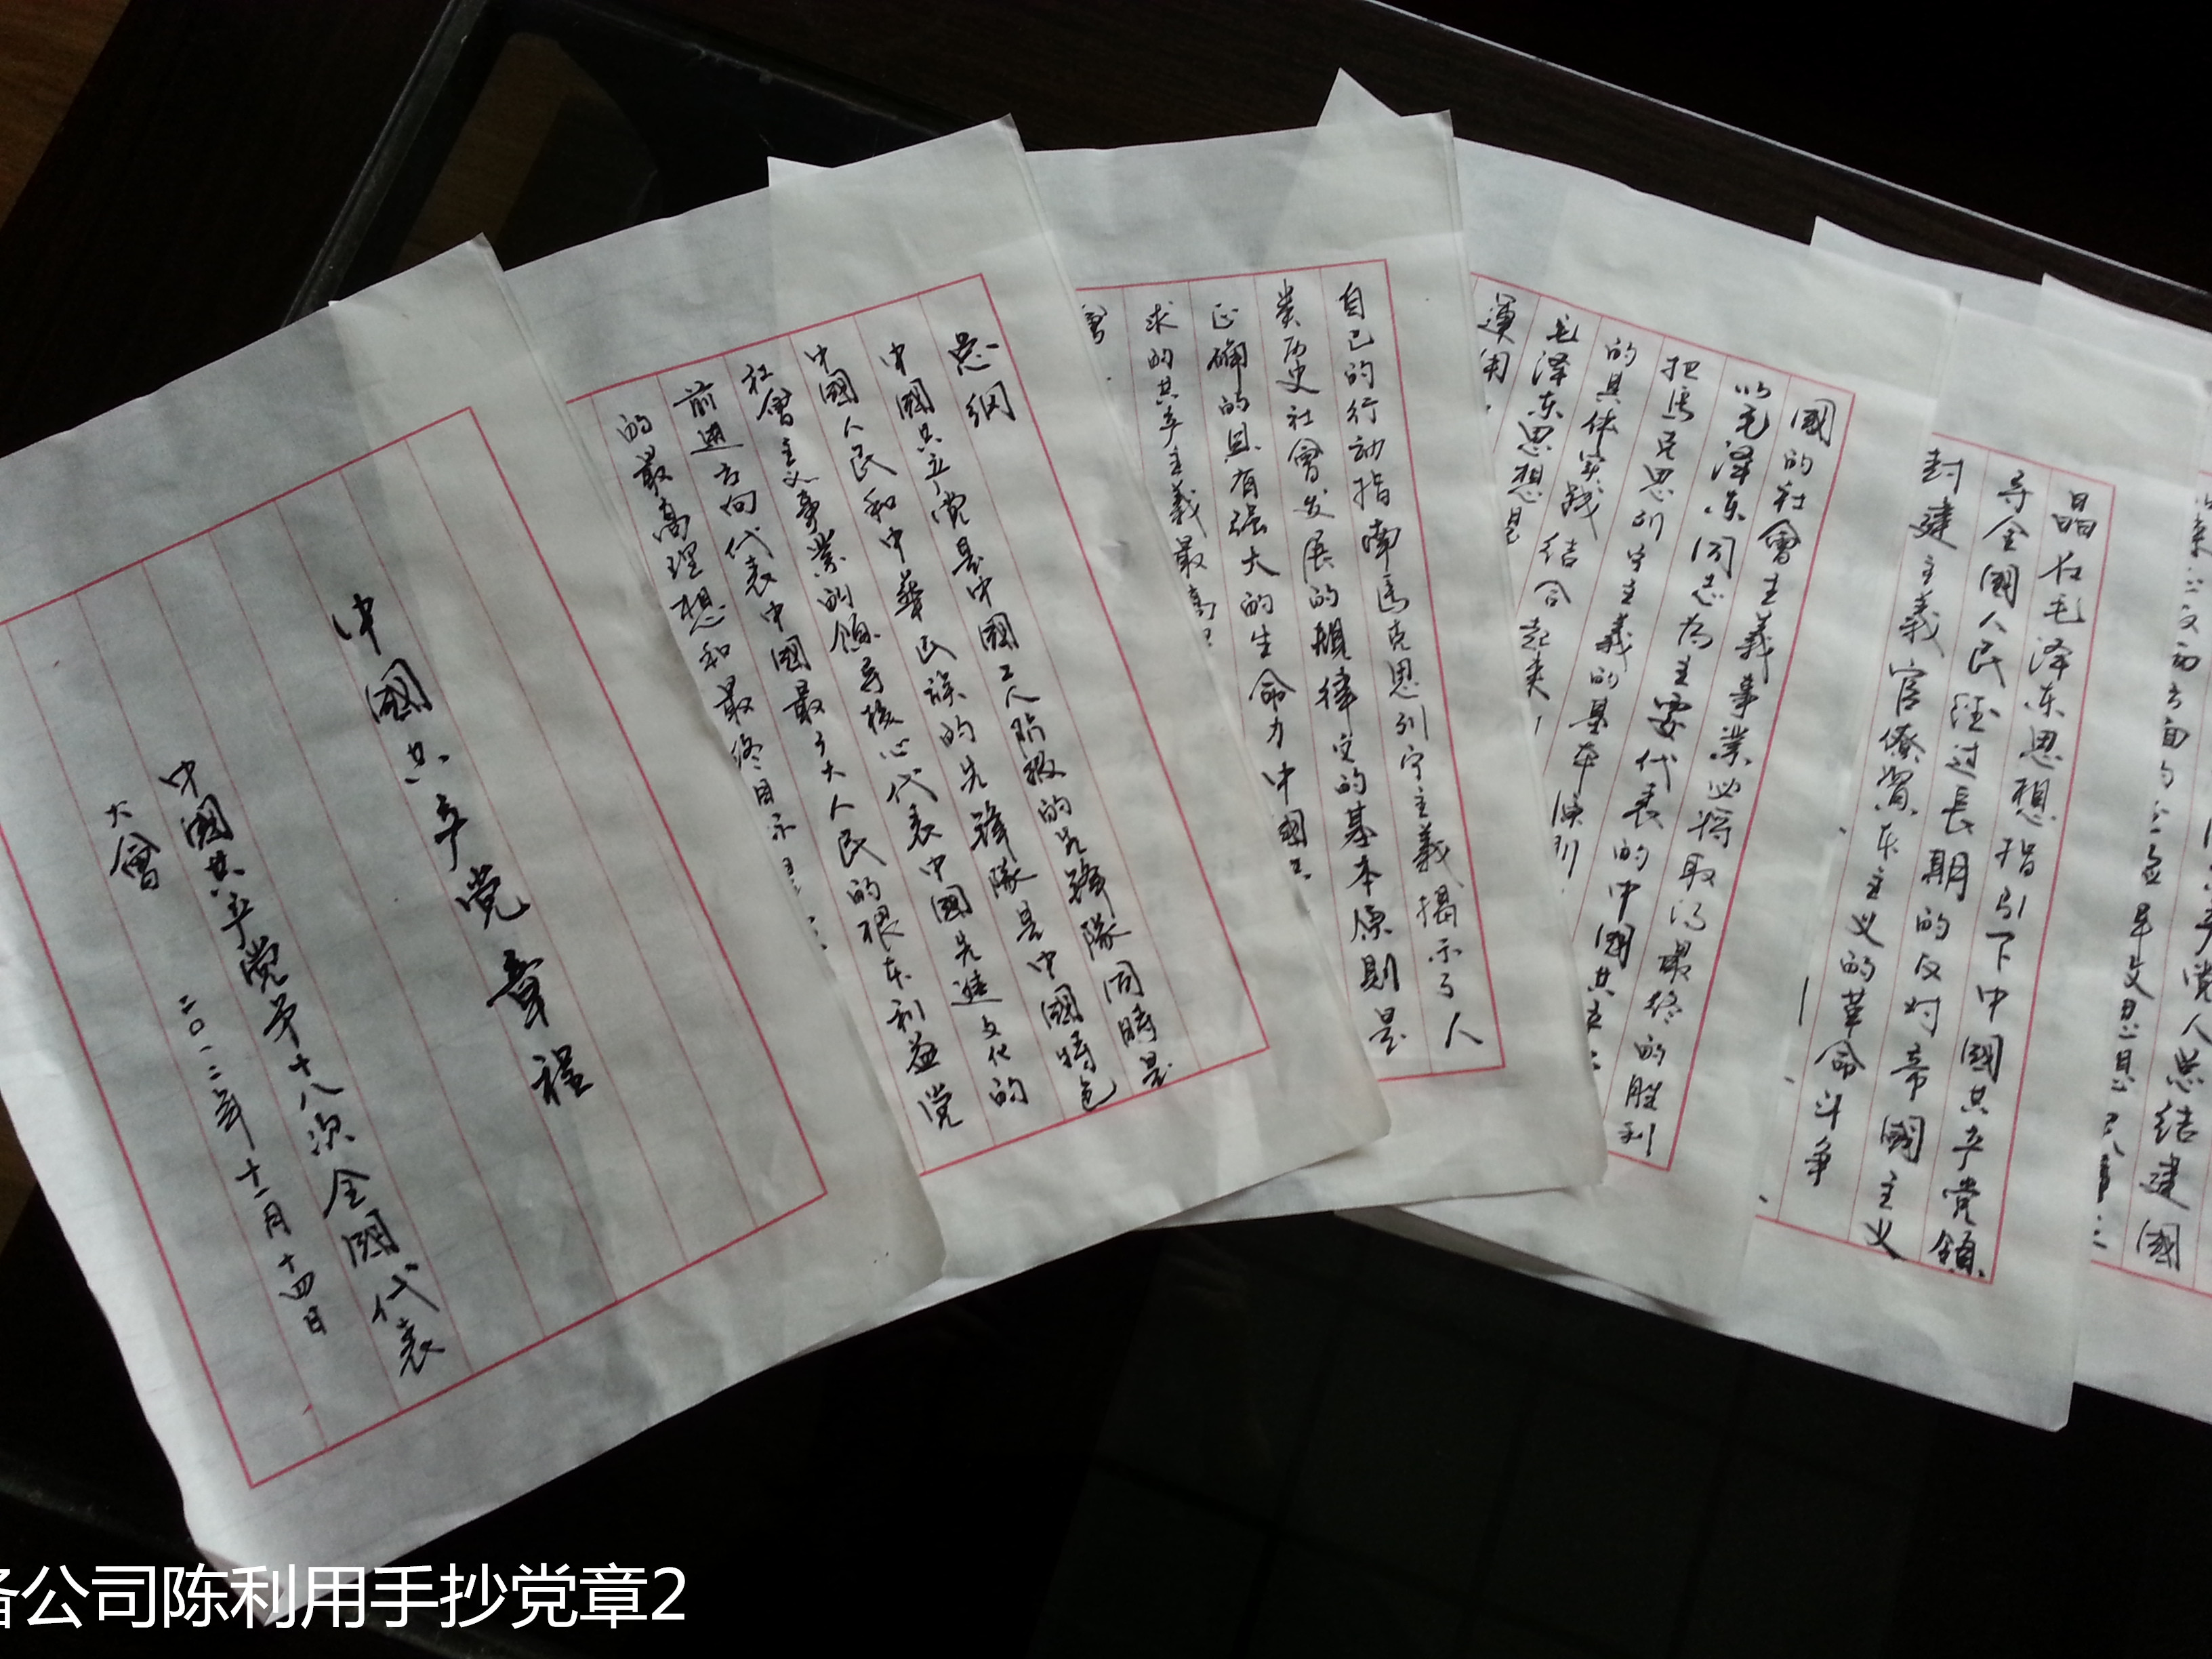 中國共产党章程
中國共产党第十八次全國代表
大會
二〇一二年十一月十四日
总纲
中國共产党是中國工人阶级的先锋隊同時是
中國人民和中華民族的先锋隊是中國特色
社會主义事業的领导核心代表中國先進文化的
前進方向代表中國最广大人民的根本利益党
的最高理想和最终目标
自己的行动指南馬克思列宁主義揭示了人
类历史社會发展的規律它的基本原則是
正确的具有强大的生命力中國共
求的共产主義最高
國的社會主義事業必将取得最终的胜利
以毛泽东同志为主要代表的中國共产
把馬克思列宁主義的基本原
的具体实践结合起来
毛泽东思想是
運用
晶在毛泽东思想指引下中國共产党领
导全國人民经过長期的反对帝國主义
封建主義官僚資本主义的革命斗争
产党人总结建國
备公司陈利用手抄党章2